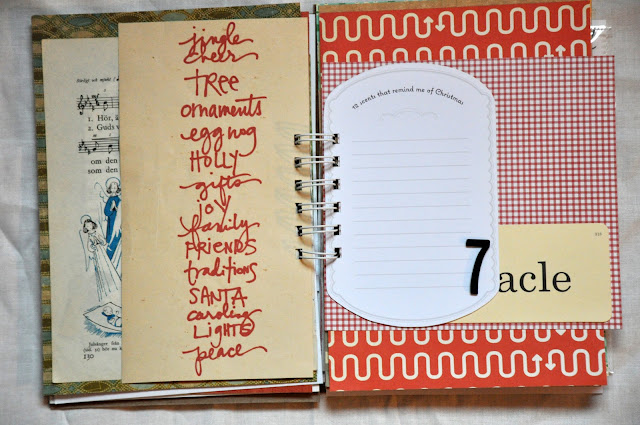 1. Hör,
2. Guds
om den
om den
130
jingle
cheer
TREE
ornaments
egg nog
HOLLY
gifts
joy
family
FRIENDS
traditions
SANTA
caroling
LIGHTS
peace
12 scents that remind me of Christmas
7
acle